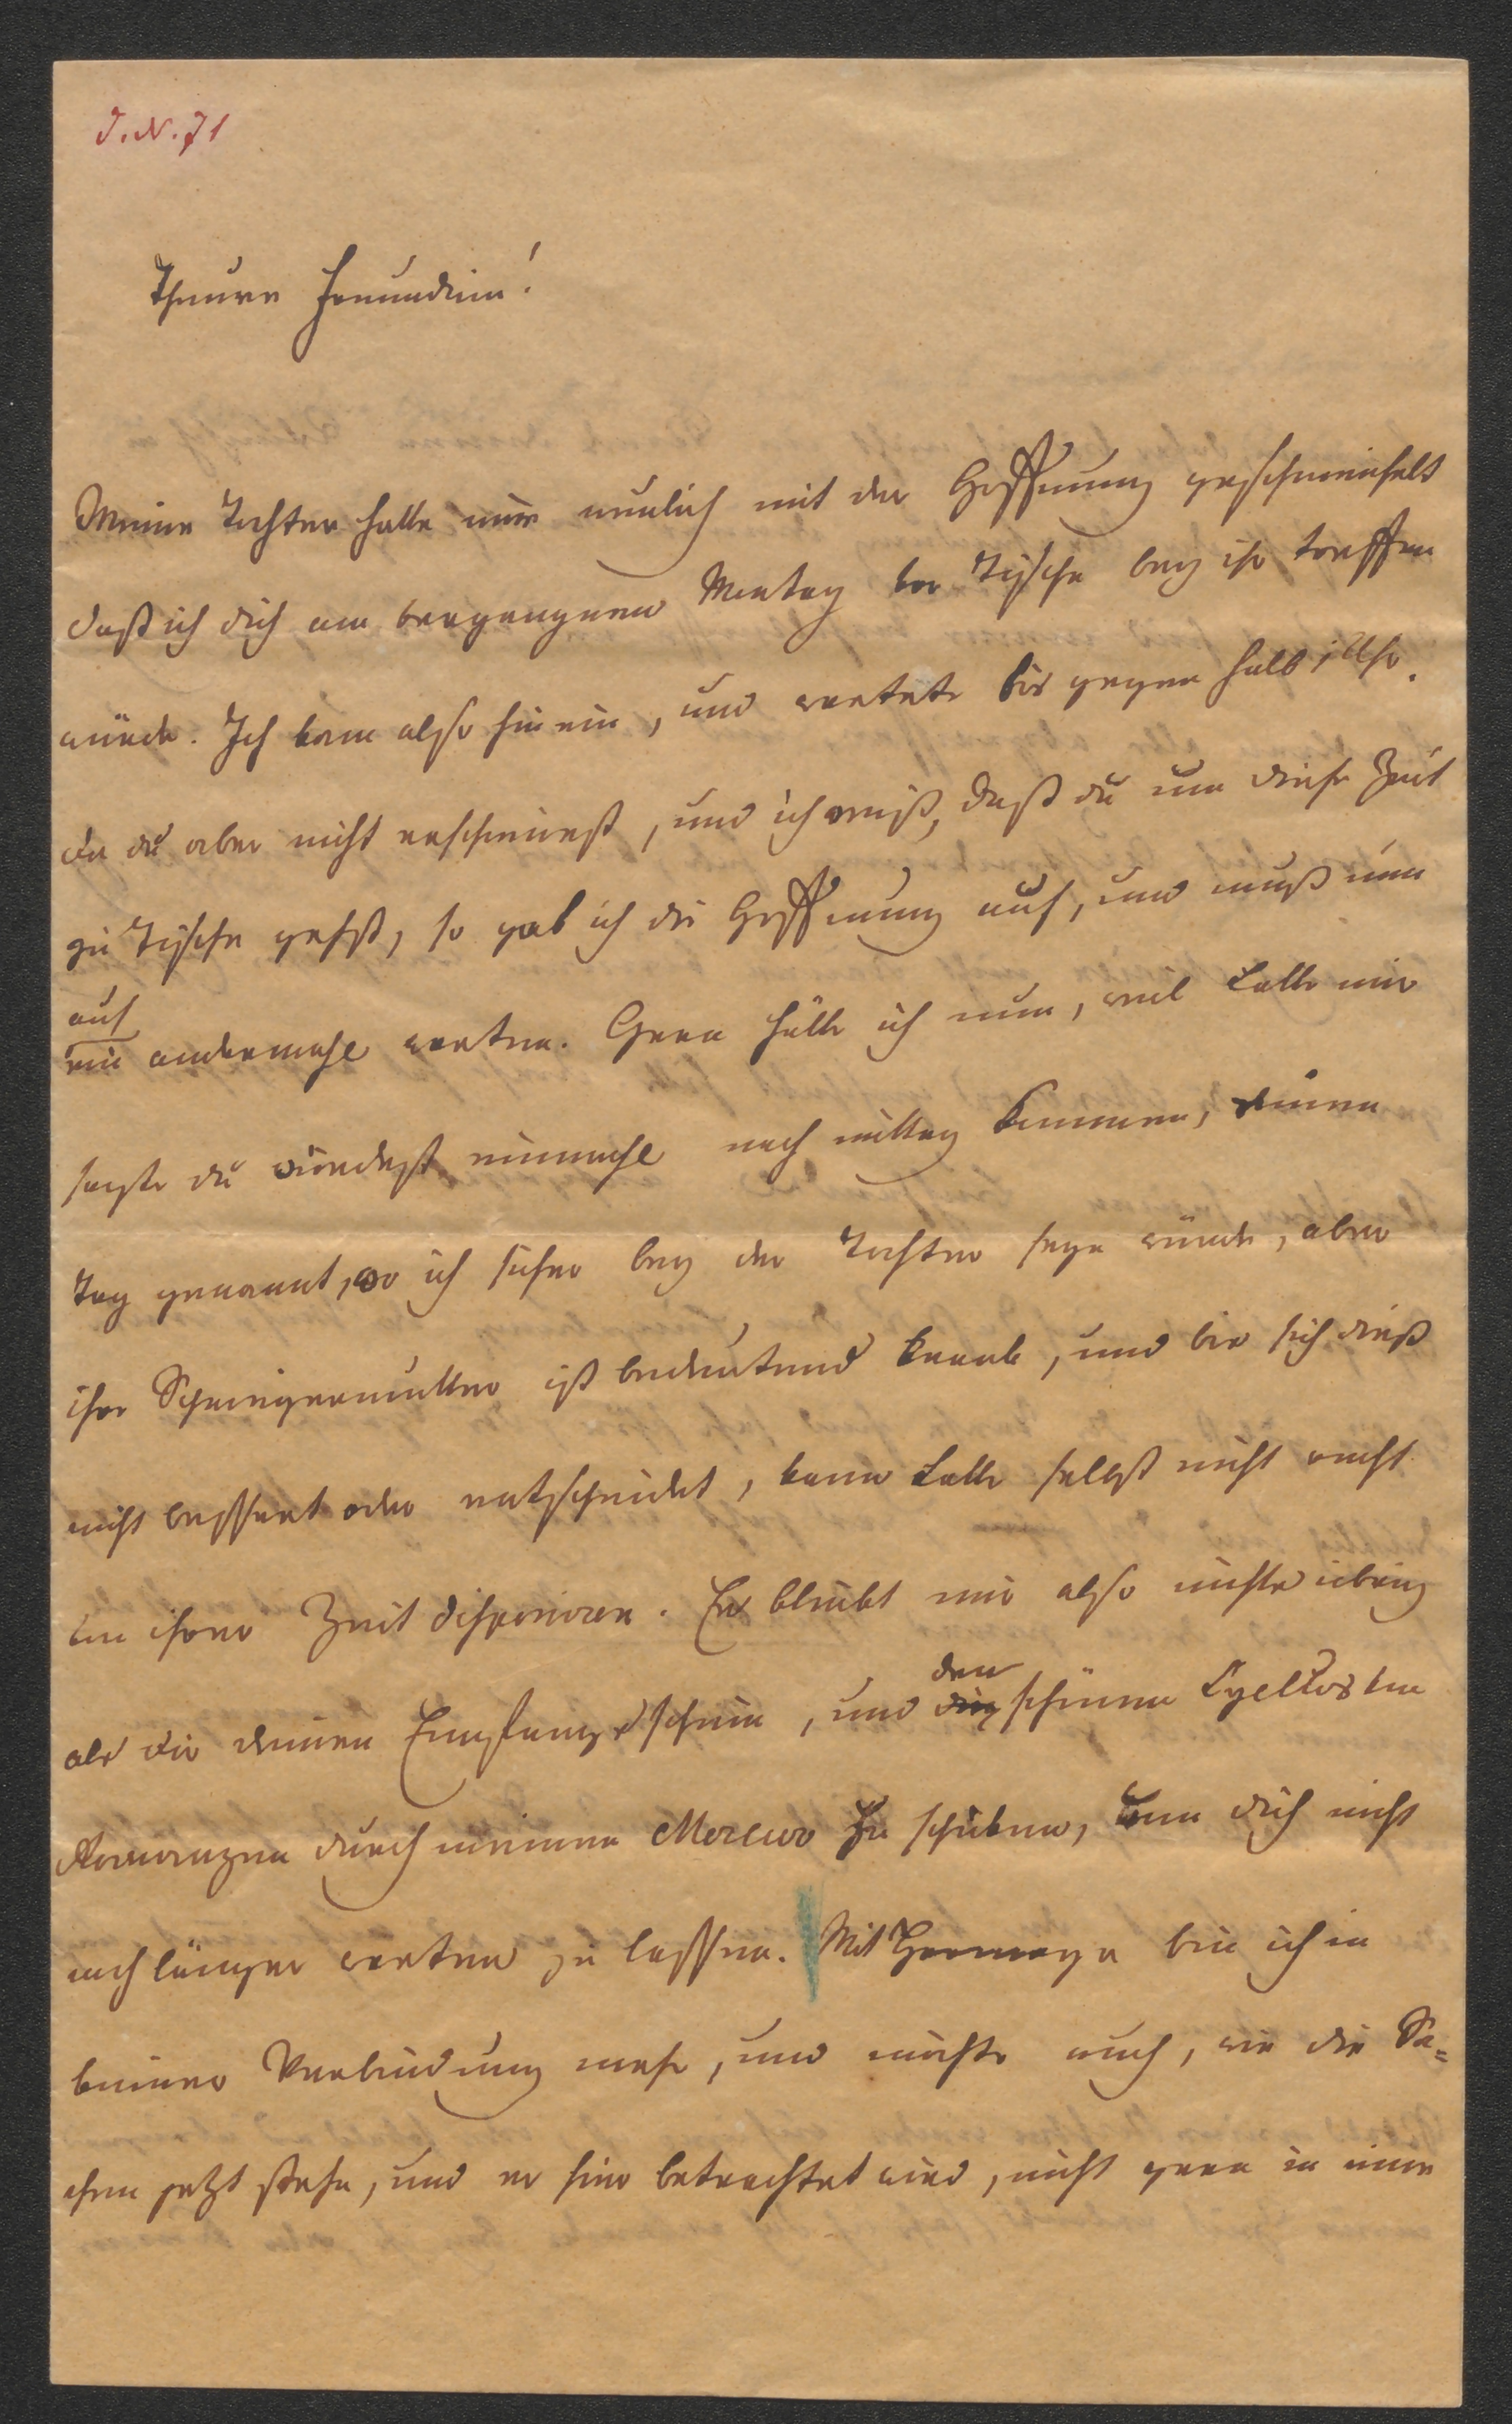 J.N. 71
Theure Freundinn!
Meine Tochter hatte mir neulich mit der Hoffnung geschmeichelt
daß ich dich am vergangnen Montag vor Tische bey ihr treffen
würde. Ich kam also hinein, und wartete bis gegen halb Uhr.
da du aber nicht erschienest, und ich weiß, daß du um diese Zeit
zu Tische gehst, so gab ich die Hoffnung auf, und muß nun
auf
ein andermahl warten. Gern hätte ich nun, weil Lotte mir
sagte du würdest einmahl nach mittag kommen, einen
Tag genannt, wo ich sicher bey der Tochter seyn würde, aber
ihre Schwiegermutter ist bedeutend krank, und bis sich dieß
nicht bessert oder entscheidet, kann Lotte selbst nicht recht
von ihrer Zeit disponiren. Es bleibt mir also nichts übrig
als dir deinen Empfangsschein, und
den
schönen von
Romanzen durch meinen Mercur zu schicken, um dich nicht
noch länger warten zu lassen. Mit Hormayr bin ich in
keiner Verbindung mehr, und möchte auch, wie die Sa=
chen jetzt stehn, und er hier betrachtet wird, nicht gern in eine